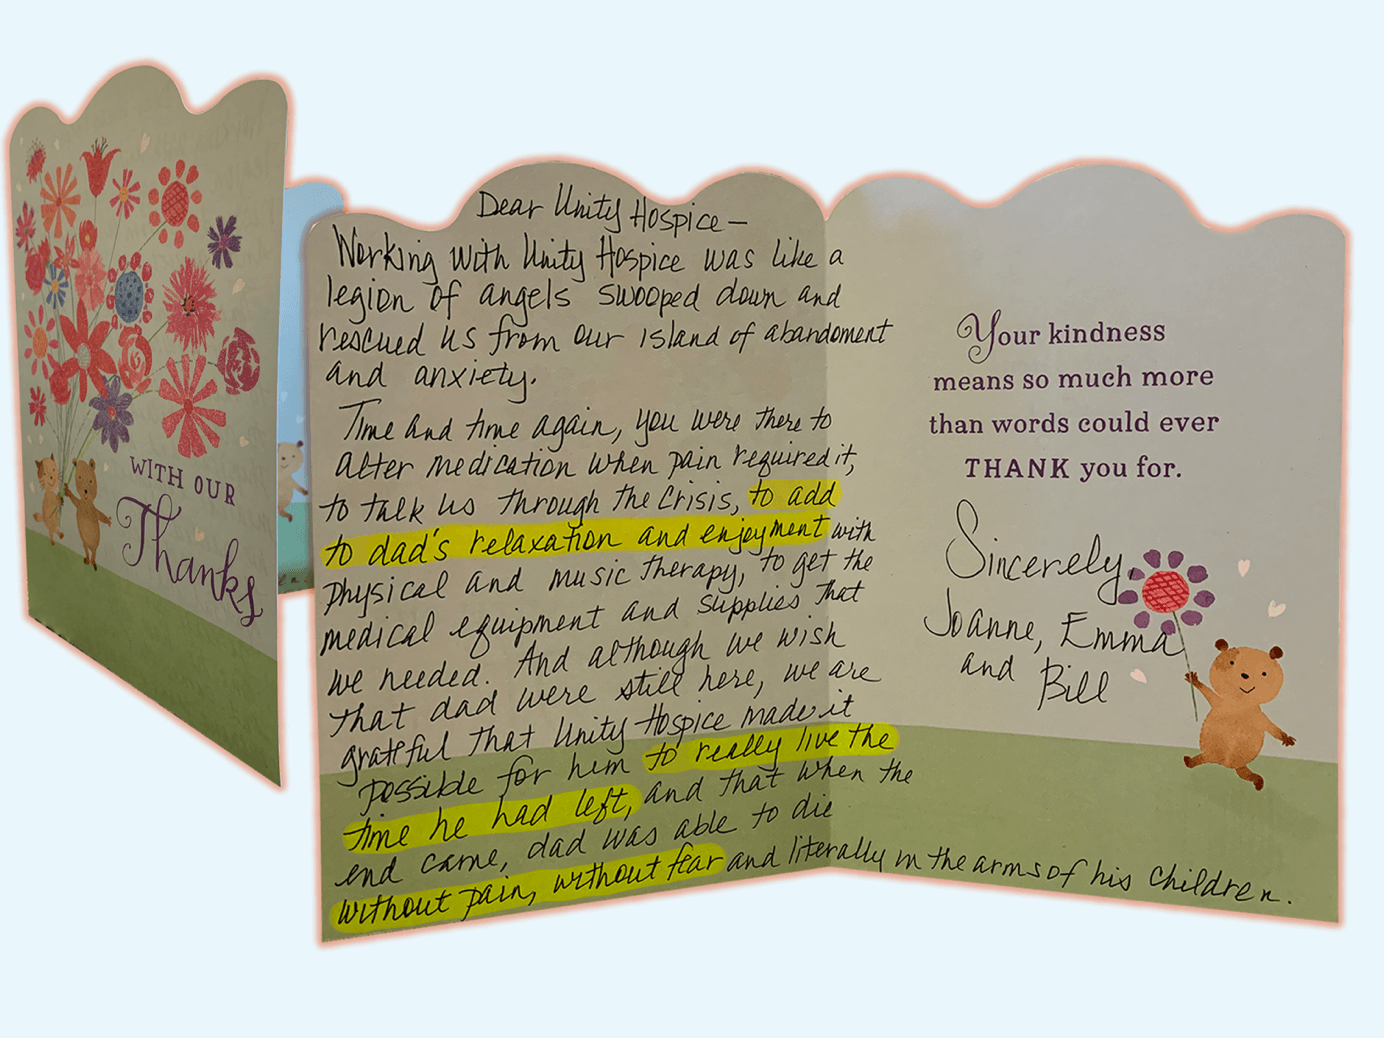 WITH OUR
Thanks
Dear Unity Hospice –
Working with Unity Hospice was like a
legion of angels swooped down and
rescued us from our island of abandoment
and anxiety.
Time and time again, you were there to
alter medication when pain required it,
to talk us through the crisis, to add
to dad's relaxation and enjoyment with
physical and music therapy, to get the
medical equipment and supplies that
we needed. And although we wish
that dad were still here, we are
grateful that Unity Hospice made it
possible for him to really live the
time he had left, and that when the
end came, dad was able to die
without pain, without fear and literally in the arms of his children.
Your kindness
means so much more
than words could ever
THANK you for.
Sincerely,
Joanne, Emma
and Bill